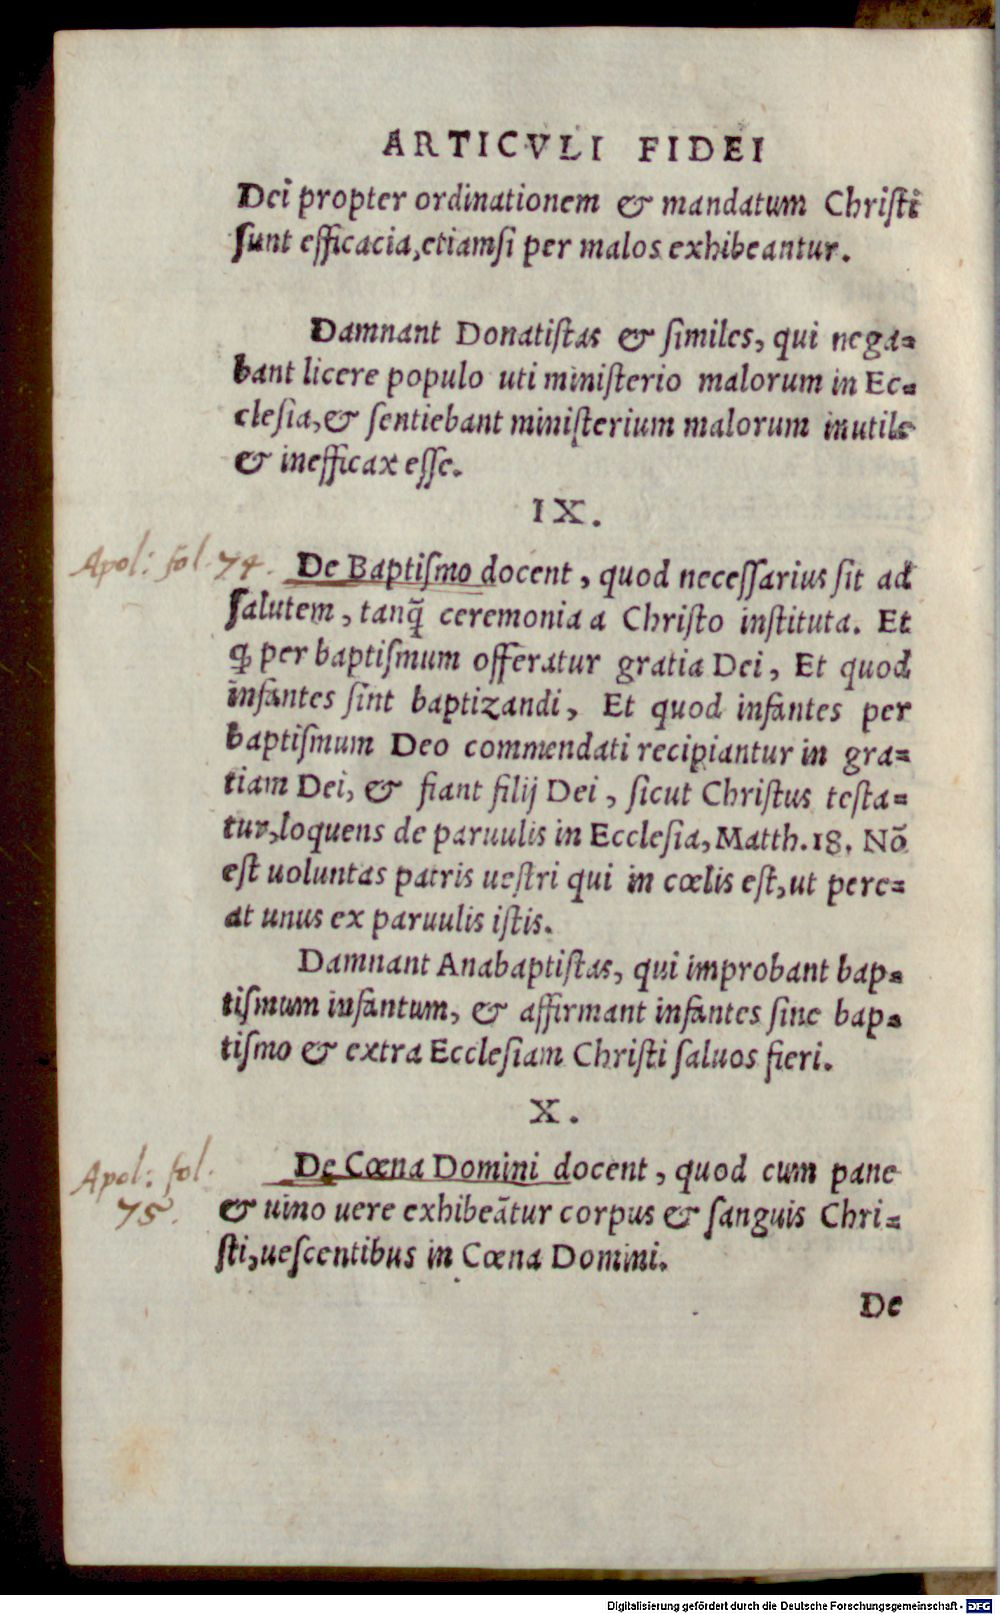 ARTICVLI FIDEI
Dei propter ordinationem & mandatum Christi
sunt efficacia, etiamsi per malos exhibeantur.
Damnant Donatistas & similes, qui nega=
bant licere populo uti ministerio malorum in Ec=
clesia, & sentiebant ministerium malorum inutile
& inefficax esse.
IX.
Apol: fol. 74.
De Baptismo docent, quod necessarius sit ad
salutem, tanq̃ ceremonia a Christo instituta. Et
ꝙ per baptismum offeratur gratia Dei, Et quod
infantes sint baptizandi, Et quod infantes per
baptismum Deo commendati recipiantur in gra=
tiam Dei, & fiant filij Dei, sicut Christus testa=
tur, loquens de paruulis in Ecclesia, Matth. 18. Nõ
est uoluntas patris uestri qui in cœlis est, ut pere=
at unus ex paruulis istis.
Damnant Anabaptistas, qui improbant bap=
tismum infantum, & affirmant infantes sine bap=
tismo & extra Ecclesiam Christi saluos fieri.
X.
Apol: fol.
75.
De Cœna Domini docent, quod cum pane
& uino uere exhibeãtur corpus & sanguis Chri=
sti, uescentibus in Cœna Domini.
De
Digitalisierung gefördert durch die Deutsche Forschungsgemeinschaft - DFG